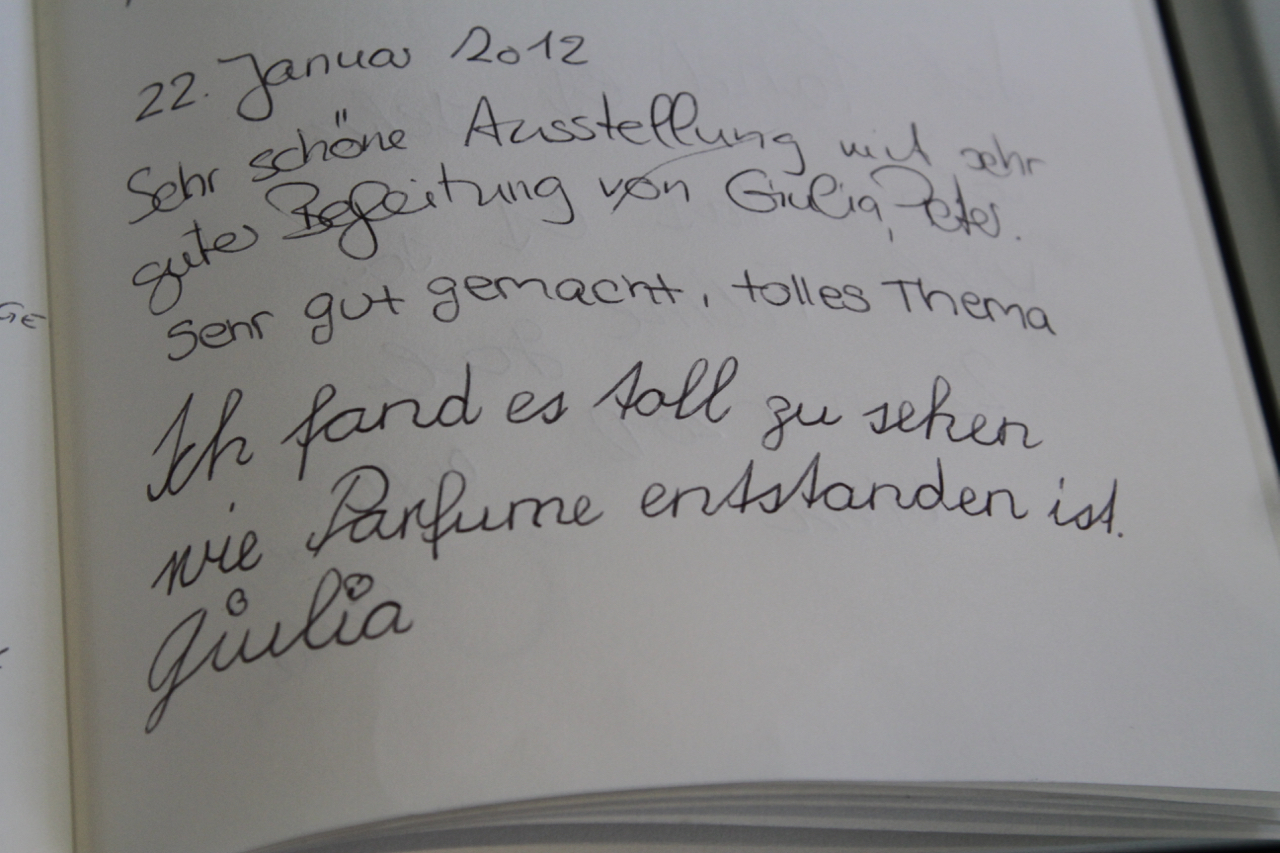 22. Januar 2012
Sehr schöne Ausstellung mit sehr
guter Begleitung von Giulia, Peter.
Sehr gut gemacht, tolles Thema
Ich fand es toll zu sehen
wie Parfume entstanden ist.
Giulia